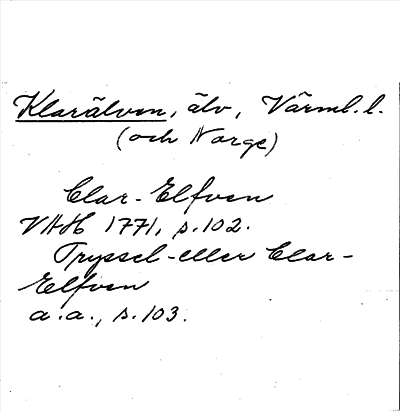 Klarälven, älv, Värml.l.
(och Norge)
Clar-Elfven
VAH 1771, s.102.
Tryssel- eller Clar-
Elfven
a.a., s.103.